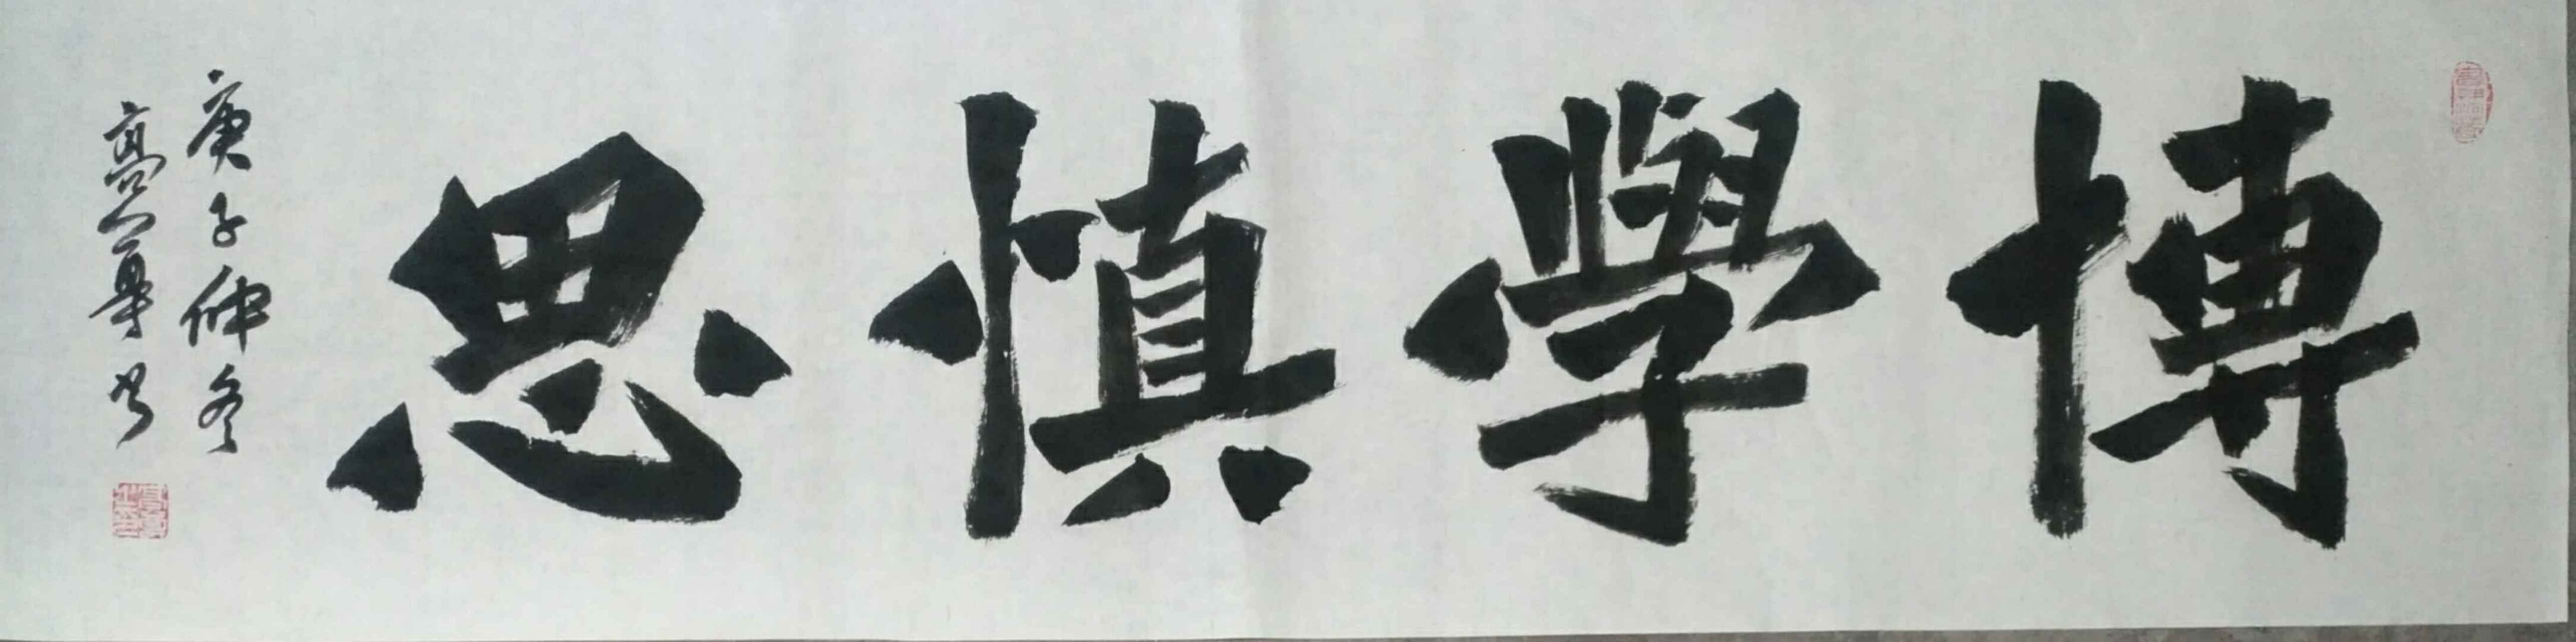 博學慎思
庚子仲冬
書